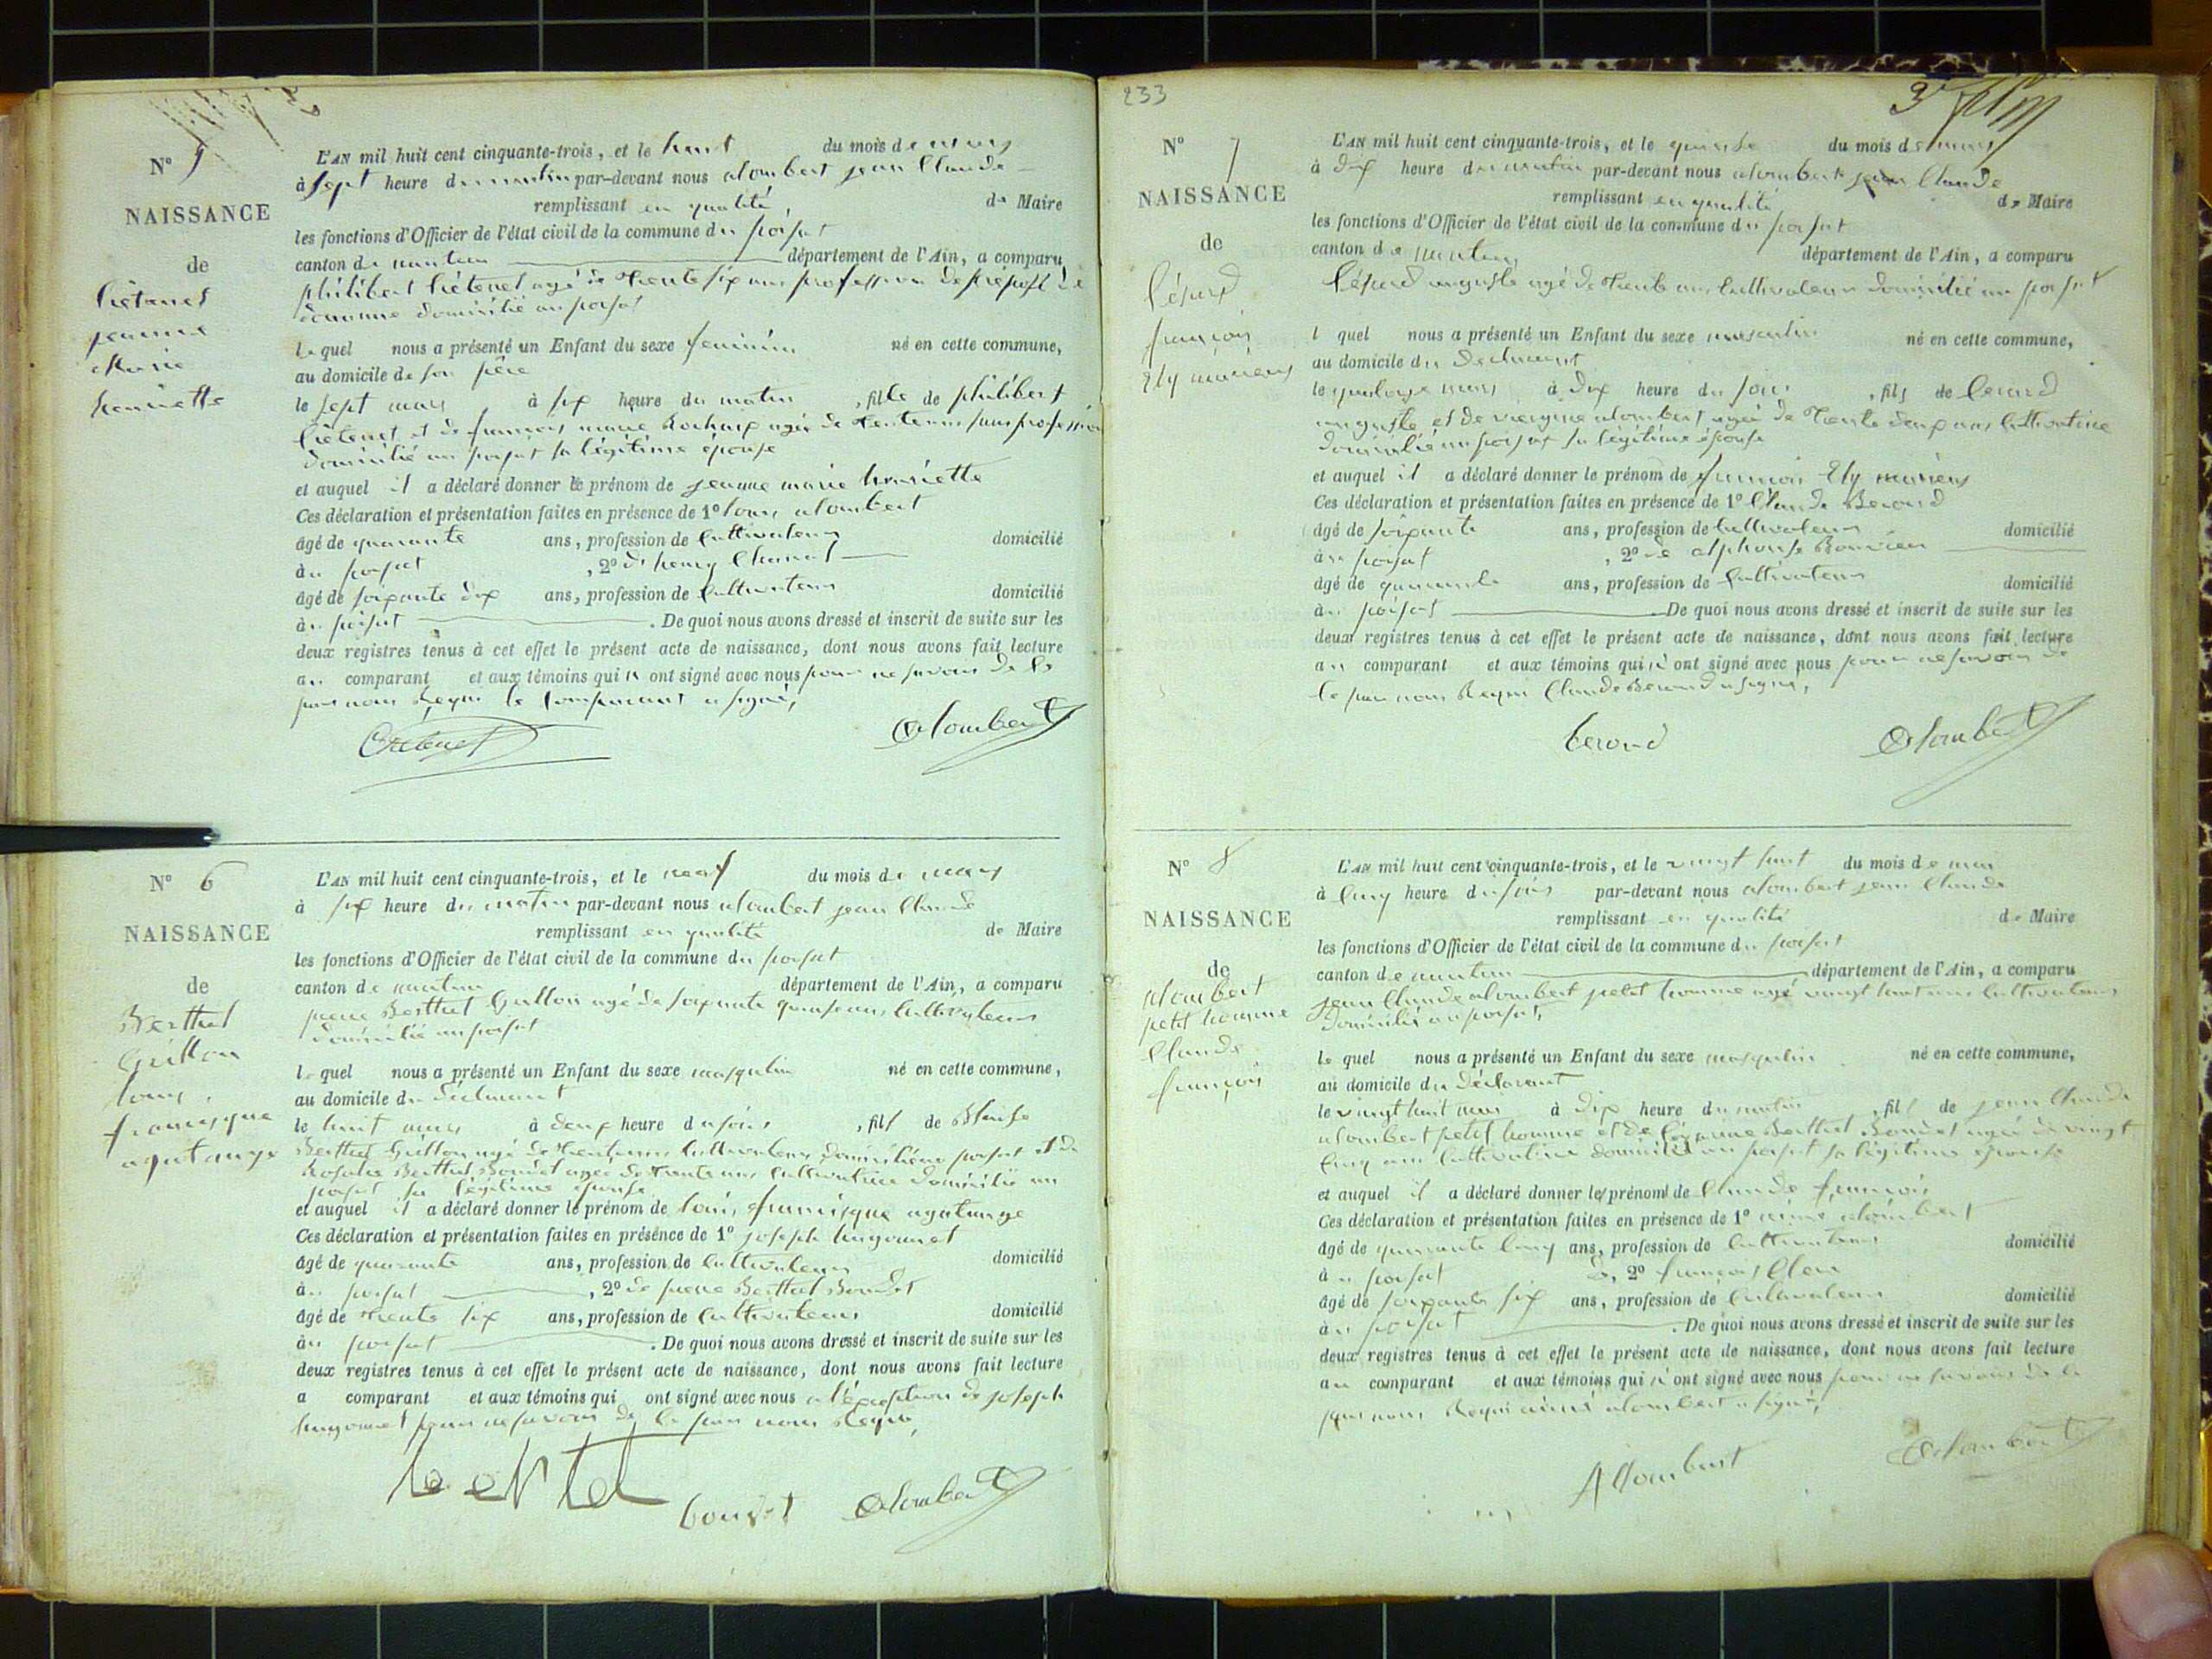 N° 5
NAISSANCE
de
jeanne
Marie
henriette
L'AN mil huit cent cinquante-trois, et le huit du mois de mars
à sept heure du matin par-devant nous alombert jean Claude
remplissant en qualité de Maire
les fonctions d'Officier de l'état civil de la commune du poisat
canton de nantua département de l'Ain, a comparu
philibert agé de trente six ans profession de préposé de
douanne domicilié au poisat
le quel nous a présenté un Enfant du sexe feminin né en cette commune,
au domicile de son père
le sept mars à six heure du matin, fille de philibert
et de françois marie agée de trente ans sans profession
domicilié au poisat sa légitime épouse
et auquel il a déclaré donner le prénom de jeanne marie henriette
Ces déclaration et présentation faites en présence de 1° louis alombert
âgé de quarante ans, profession de Cultivateur domicilié
àu poisat, 2° de
âgé de soixante dix ans, profession de Cultivateur domicilié
àu poisat. De quoi nous avons dressé et inscrit de suite sur les
deux registres tenus à cet effet le présent acte de naissance, dont nous avons fait lecture
au comparant et aux témoins qui n ont signé avec nous pour ne savoir de ce
par nous Requi le comparant a signé,
Alombert
N° 6
NAISSANCE
de
Berthet
Guillon
louis
francisque
agatange
L'AN mil huit cent cinquante-trois, et le neuf du mois de mars
à six heure du matin par-devant nous alombert jean Claude
remplissant en qualité de Maire
les fonctions d'Officier de l'état civil de la commune du poisat
canton de nantua département de l'Ain, a comparu
pierre Berthet Guillon agé de soixante quinze ans Cultivateur
domicilié au poisat
le quel nous a présenté un Enfant du sexe masqulin né en cette commune,
au domicile du déclarant
le huit mars à deux heure du soir, fils de Blaise
Berthet Guillon agé de trente ans Cultivateur domicilié au poisat et de
Rosalie Berthet Bondet agée de trente ans Cultivatrice domicilié au
poisat sa légitime épouse
et auquel il a déclaré donner le prénom de louis francisque agatange
Ces déclaration et présentation faites en présence de 1° joseph hugonnet
âgé de quarante ans, profession de Cultivateur domicilié
àu poisat, 2° de pierre Berthet Bondet
âgé de trente six ans, profession de Cultivateur domicilié
àu poisat. De quoi nous avons dressé et inscrit de suite sur les
deux registres tenus à cet effet le présent acte de naissance, dont nous avons fait lecture
a comparant et aux témoins qui ont signé avec nous a l'éxeption de joseph
hugonnet pour ne savoir de ce par nous Requi,
bertet
bondet Alombert
233
N° 7
NAISSANCE
de
françois
Ely mariens
L'AN mil huit cent cinquante-trois, et le quinse du mois de mars
à dix heure du matin par-devant nous alombert jean Claude
remplissant en qualité de Maire
les fonctions d'Officier de l'état civil de la commune du poisat
canton de nantua département de l'Ain, a comparu
auguste agé de trente ans Cultivateur domicilié au poisat
l quel nous a présenté un Enfant du sexe masculin né en cette commune,
au domicile du déclarant
le quatorze mars à dix heure du soir, fils de
auguste et de alombert agée de trente deux ans Cultivatrice
domicilié au poisat sa légitime épouse
et auquel il a déclaré donner le prénom de françois Ely mariens
Ces déclaration et présentation faites en présence de 1° Claude Berond
âgé de soixante ans, profession de Cultivateur domicilié
àu poisat, 2° de alphonse
âgé de quarante ans, profession de Cultivateur domicilié
àu poisat. De quoi nous avons dressé et inscrit de suite sur les
deux registres tenus à cet effet le présent acte de naissance, dont nous avons fait lecture
au comparant et aux témoins qui n ont signé avec nous pour ne savoir de
ce par nous Requi Claude Berond a signé,
berond Alombert
N° 8
NAISSANCE
de
alombert
petit homme
Claude
françois
L'AN mil huit cent cinquante-trois, et le vingt huit du mois de mars
à cinq heure du soir par-devant nous alombert jean Claude
remplissant en qualité de Maire
les fonctions d'Officier de l'état civil de la commune du poisat
canton de nantua département de l'Ain, a comparu
jean Claude alombert petit homme agé vingt huit ans Cultivateur
domicilié au poisat,
le quel nous a présenté un Enfant du sexe masqulin né en cette commune,
au domicile du déclarant
le vingt huit mars à dix heure du matin, fils de jean Claude
alombert petit homme et de Berthet Bondet agée de vingt
cinq ans Cultivatrice domicilié au poisat sa légitime épouse
et auquel il a déclaré donner les prénoms de Claude françois
Ces déclaration et présentation faites en présence de 1° aimé alombert
âgé de quarante cinq ans, profession de Cultivateur domicilié
àu poisat, 2° françois
âgé de soixante six ans, profession de Cultivateur domicilié
àu poisat. De quoi nous avons dressé et inscrit de suite sur les
deux registres tenus à cet effet le présent acte de naissance, dont nous avons fait lecture
au comparant et aux témoins qui n ont signé avec nous pour ne savoir de ce
par nous Requi aimé alombert a signé,
Alombert Alombert